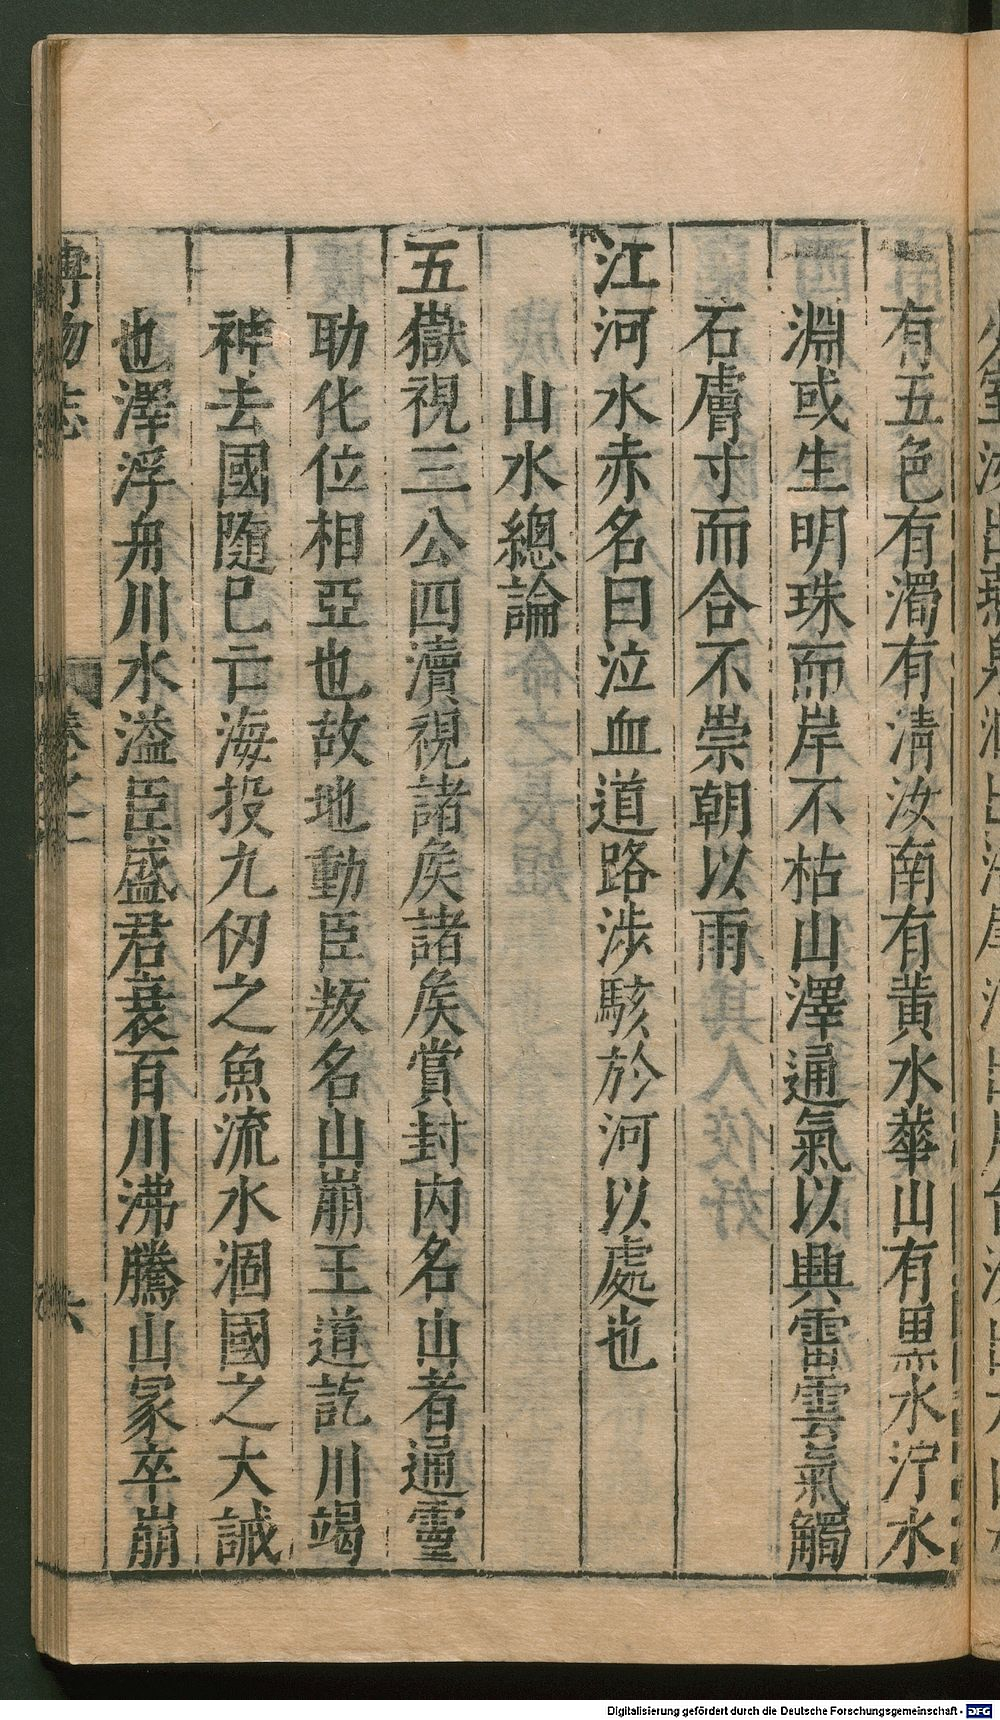 有五色有濁有清汝南有黃水華山有黒水濘水
淵或生明珠而岸不枯山澤通氣以興雷雲氣觸
石膚寸而合不崇朝以雨
江河水赤名曰泣血道路渉駭於河以處也
山水總論
五嶽視三公四瀆視諸侯諸侯賞封内名山者通靈
助化位相亞也故地動臣叛名山崩王道訖川竭
神去國隨已亡海投九仞之魚流水涸國之大誡
也澤浮舟川水溢臣盛君衰百川沸騰山冢卒崩
博物志 卷之一 六
Digitalisierung gefördert durch die Deutsche Forschungsgemeinschaft - DFG